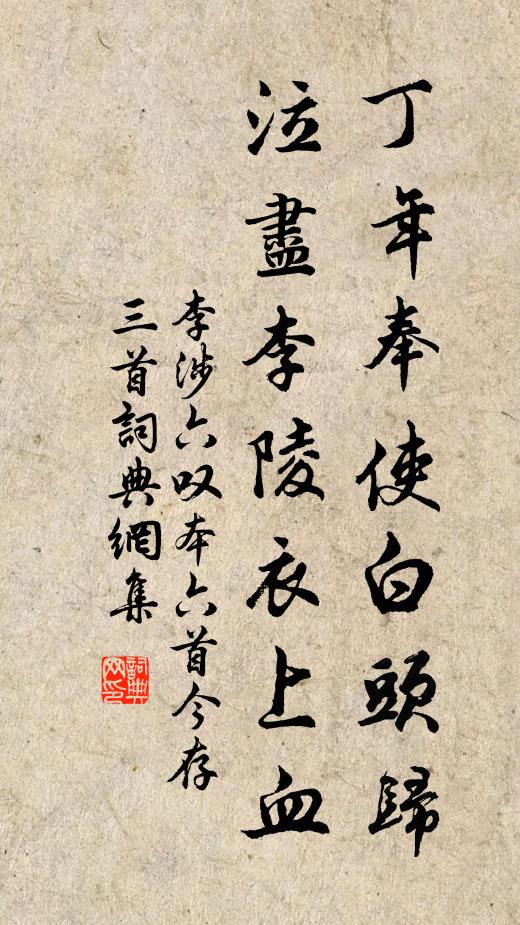 丁年奉使白頭歸
泣盡李陵衣上血
李涉六叹本六首今存
三首詞典網集
詞典网印